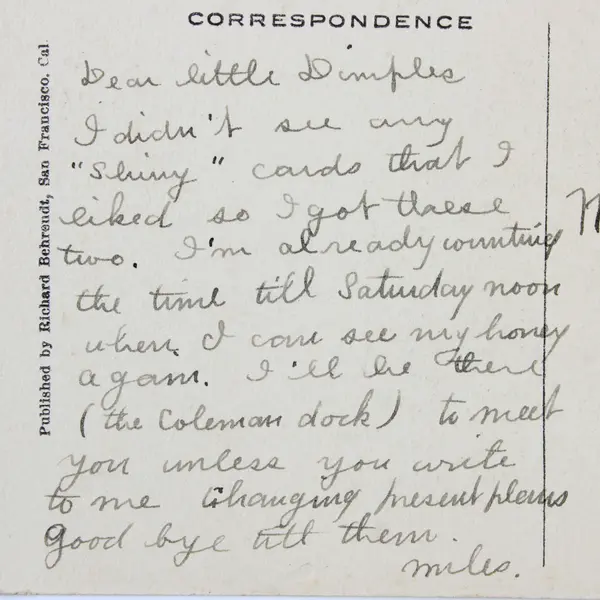 CORRESPONDENCE
Published by Richard Behrendt, San Francisco, Cal.
Dear little Dimples
I didn't see any
"Shiny" cards that I
liked so I got these
two. I'm already counting
the time till Saturday noon
when I can see my honey
again. I'll be there
(the Coleman dock) to meet
you unless you write
to me changing present plans
Good bye till then.
miles.